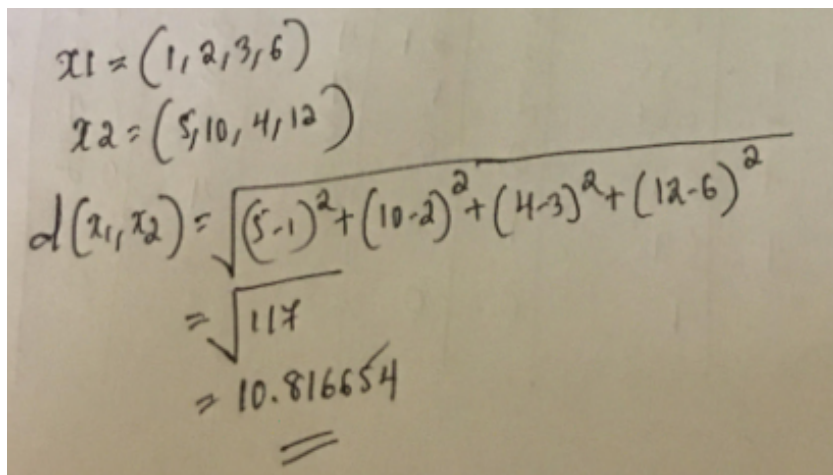 x1 = (1, 2, 3, 6)
x2 = (5, 10, 4, 12)
d(x₁, x₂) = √((5-1)² + (10-2)² + (4-3)² + (12-6)²)
= √117
= 10.816654